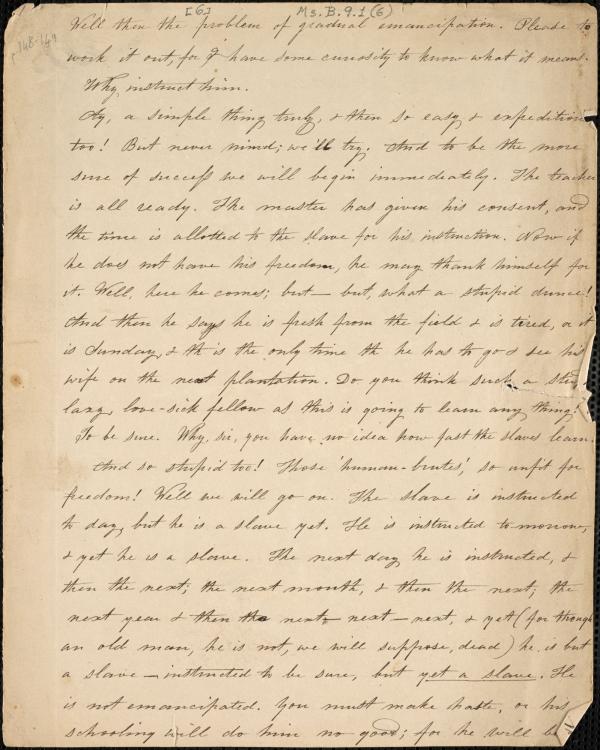 [6] Ms. B. 9. 1 (6)
148-149
Well then the problem of gradual emancipation. Please to
work it out, for I have some curiosity to know what it means.
Why, instruct him.
Ay, a simple thing truly, & then so easy & expeditious
too! But never mind; we'll try. And to be the more
sure of success we will begin immediately. The teacher
is all ready. The master has given his consent, and
the time is allotted to the slave for his instruction. Now if
he does not have his freedom, he may thank himself for
it. Well, here he comes; but — but, what a stupid dunce!
And then he says he is fresh from the field & is tired, or it
is Sunday, & th is the only time th he has to go & see his
wife on the next plantation. Do you think such a
lazy, love-sick fellow as this is going to learn any thing?
To be sure. Why, sir, you have no idea how fast the slaves learn.
And so stupid too! Those 'human-brutes', so unfit for
freedom! Well we will go on. The slave is instructed
to day, but he is a slave yet. He is instructed to-morrow,
& yet he is a slave. The next day he is instructed, &
then the next; the next month, & then the next; the
next year & then the next – next – next, & yet (for though
an old man, he is not, we will suppose, dead) he is but
a slave — instructed to be sure, but yet a slave. He
is not emancipated. You must make haste, or his
schooling will do him no good; for he will be